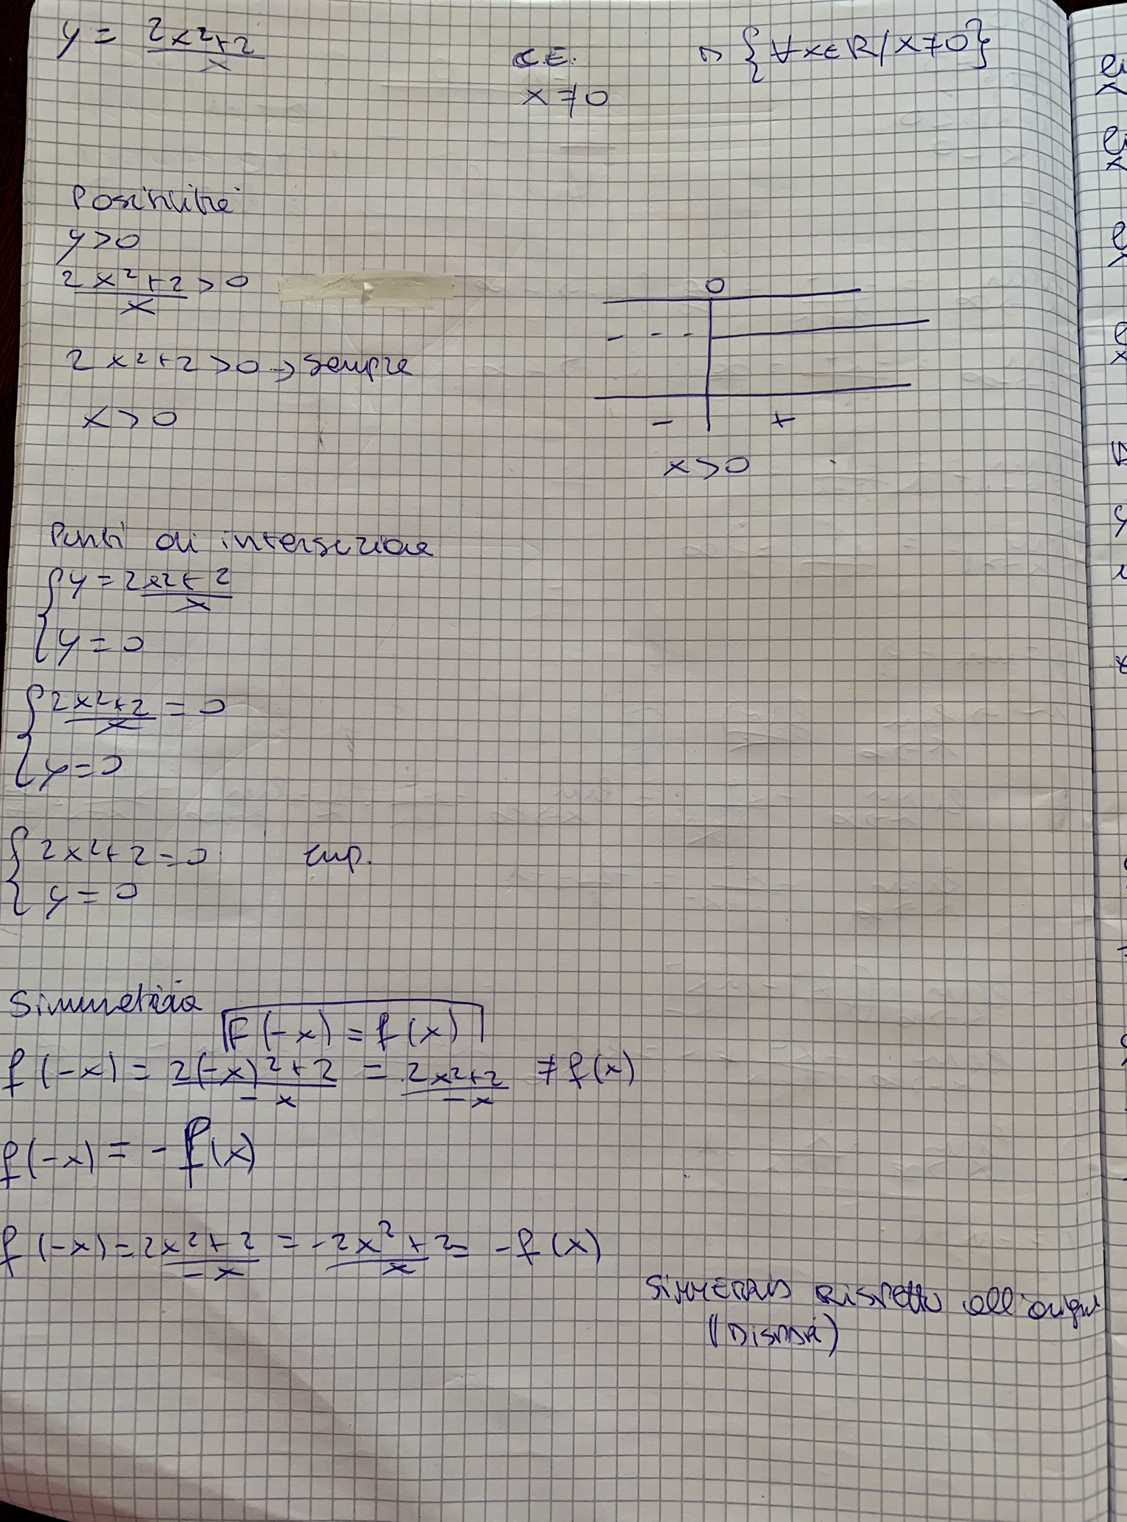 y = 2x²+2 / x
C.E. D {∀x∈R/x≠0}
x ≠ 0
Positività
y>0
2x²+2 / x > 0
0
- - - -
2x²+2>0 → sempre
x>0
- +
x>0
Punti di intersezione
{ y = 2x²+2 / x
{ y = 0
{ 2x²+2 / x = 0
{ y=0
{ 2x²+2=0 imp.
{ y = 0
Simmetria
F(-x) = f(x)
f(-x) = 2(-x)²+2 / -x = 2x²+2 / -x ≠ f(x)
f(-x) = -f(x)
f(-x) = 2x²+2 / -x = -2x²+2 / x = -f(x)
rispetto all'origine